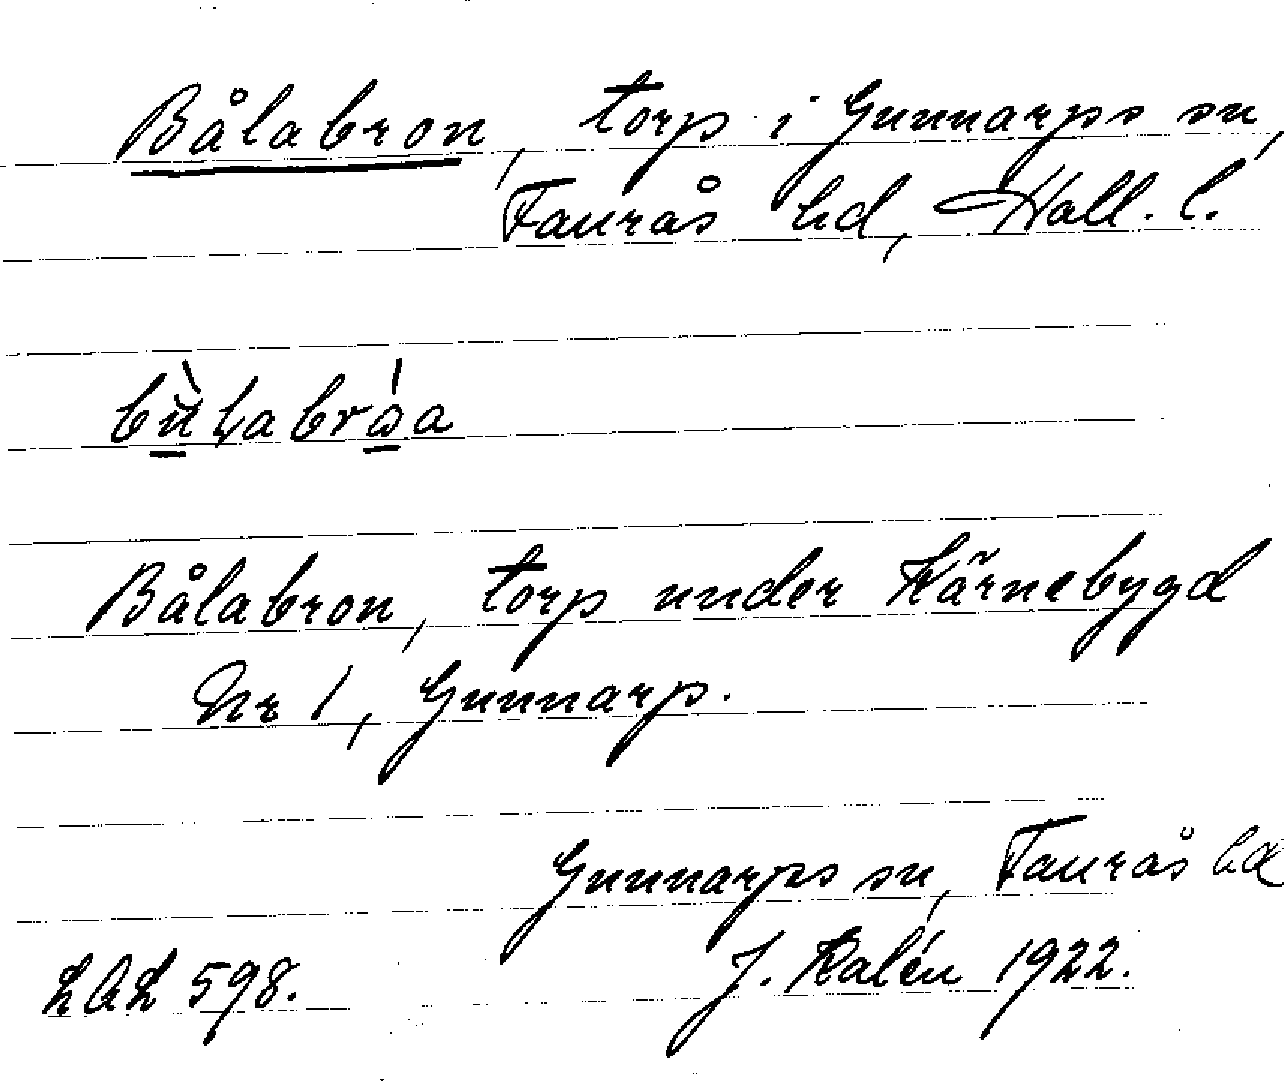 Bålabron, torp i Gunnarps sn,
Faurås hd, Hall. l.
Bålabron, torp under Kärnebygd
Nr 1, Gunnarp.
Gunnarps sn, Faurås hd
LAL 598. J. Kalén 1922.